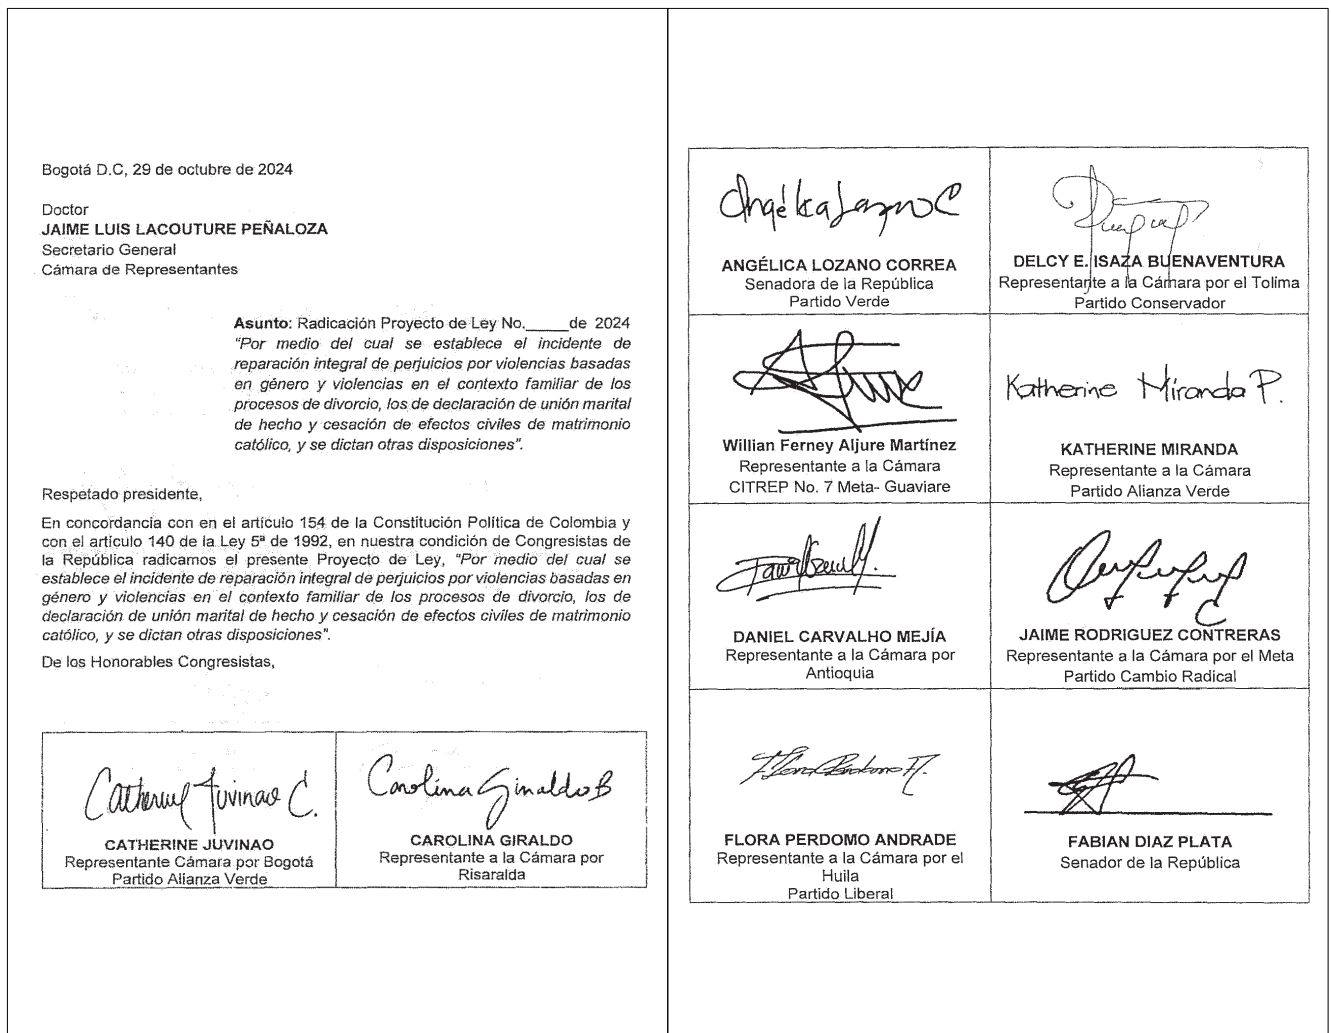 Bogotá D.C, 29 de octubre de 2024
Doctor
JAIME LUIS LACOUTURE PEÑALOZA
Secretario General
Cámara de Representantes
Asunto: Radicación Proyecto de Ley No._____de 2024
“Por medio del cual se establece el incidente de
reparación integral de perjuicios por violencias basadas
en género y violencias en el contexto familiar de los
procesos de divorcio, los de declaración de unión marital
de hecho y cesación de efectos civiles de matrimonio
católico, y se dictan otras disposiciones”.
Respetado presidente,
En concordancia con en el artículo 154 de la Constitución Política de Colombia y
con el artículo 140 de la Ley 5ª de 1992, en nuestra condición de Congresistas de
la República radicamos el presente Proyecto de Ley, “Por medio del cual se
establece el incidente de reparación integral de perjuicios por violencias basadas en
género y violencias en el contexto familiar de los procesos de divorcio, los de
declaración de unión marital de hecho y cesación de efectos civiles de matrimonio
católico, y se dictan otras disposiciones”.
De los Honorables Congresistas,
Catherine Juvinao C.
CATHERINE JUVINAO
Representante Cámara por Bogotá
Partido Alianza Verde
Carolina Giraldo B
CAROLINA GIRALDO
Representante a la Cámara por
Risaralda
Angélica Lozano C
ANGÉLICA LOZANO CORREA
Senadora de la República
Partido Verde
DELCY E. ISAZA BUENAVENTURA
Representante a la Cámara por el Tolima
Partido Conservador
Willian Ferney Aljure Martínez
Representante a la Cámara
CITREP No. 7 Meta- Guaviare
Katherine Miranda P.
KATHERINE MIRANDA
Representante a la Cámara
Partido Alianza Verde
DANIEL CARVALHO MEJÍA
Representante a la Cámara por
Antioquia
JAIME RODRIGUEZ CONTRERAS
Representante a la Cámara por el Meta
Partido Cambio Radical
FLORA PERDOMO ANDRADE
Representante a la Cámara por el
Huila
Partido Liberal
FABIAN DIAZ PLATA
Senador de la República